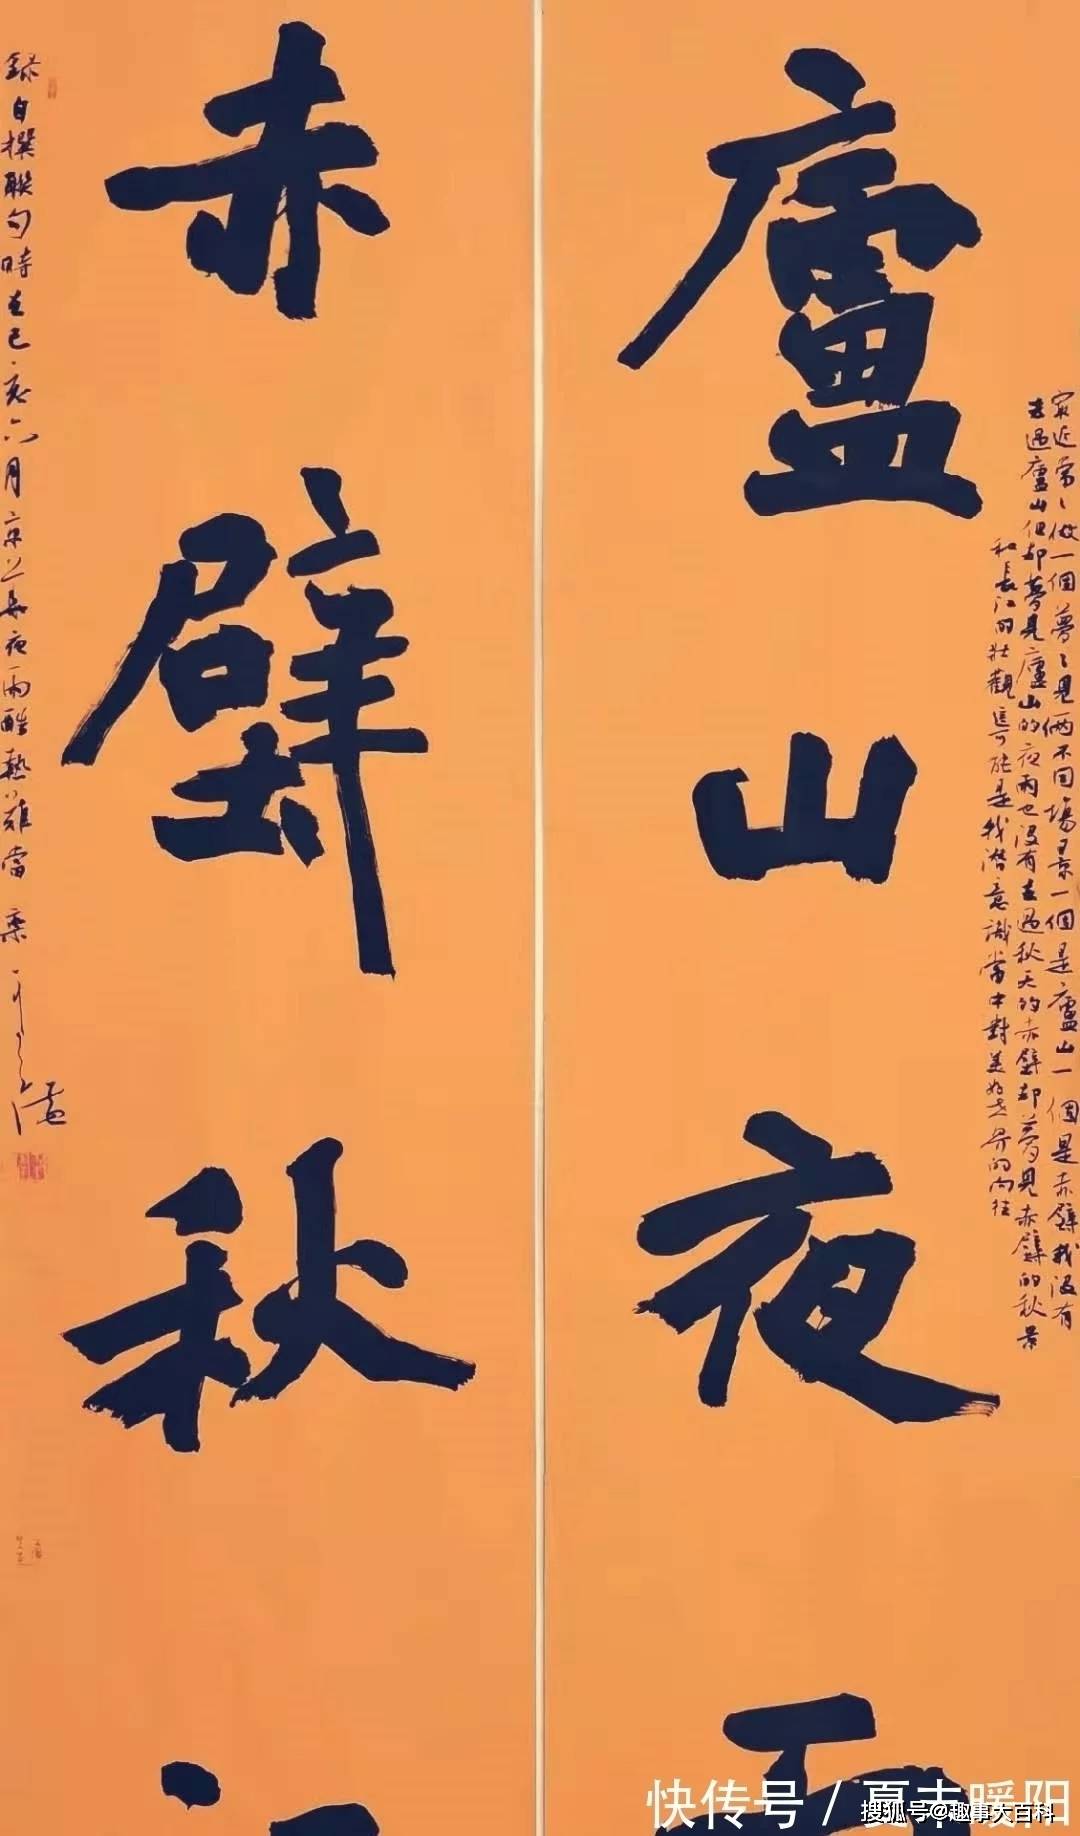 廬山夜
最近常〻做一個夢〻見兩個不同場景一個是廬山一個是赤壁我沒有
去過廬山但却夢見廬山的夜雨也沒有去過秋天的赤壁却夢見赤壁的秋景
和長江的壯觀這可能是我潛意識當中對美好世界的向往
赤壁秋
錄自撰聯句時在己亥六月京華夜雨酷熱難當
快传号 / 夏末暖阳
搜狐号@趣事大百科